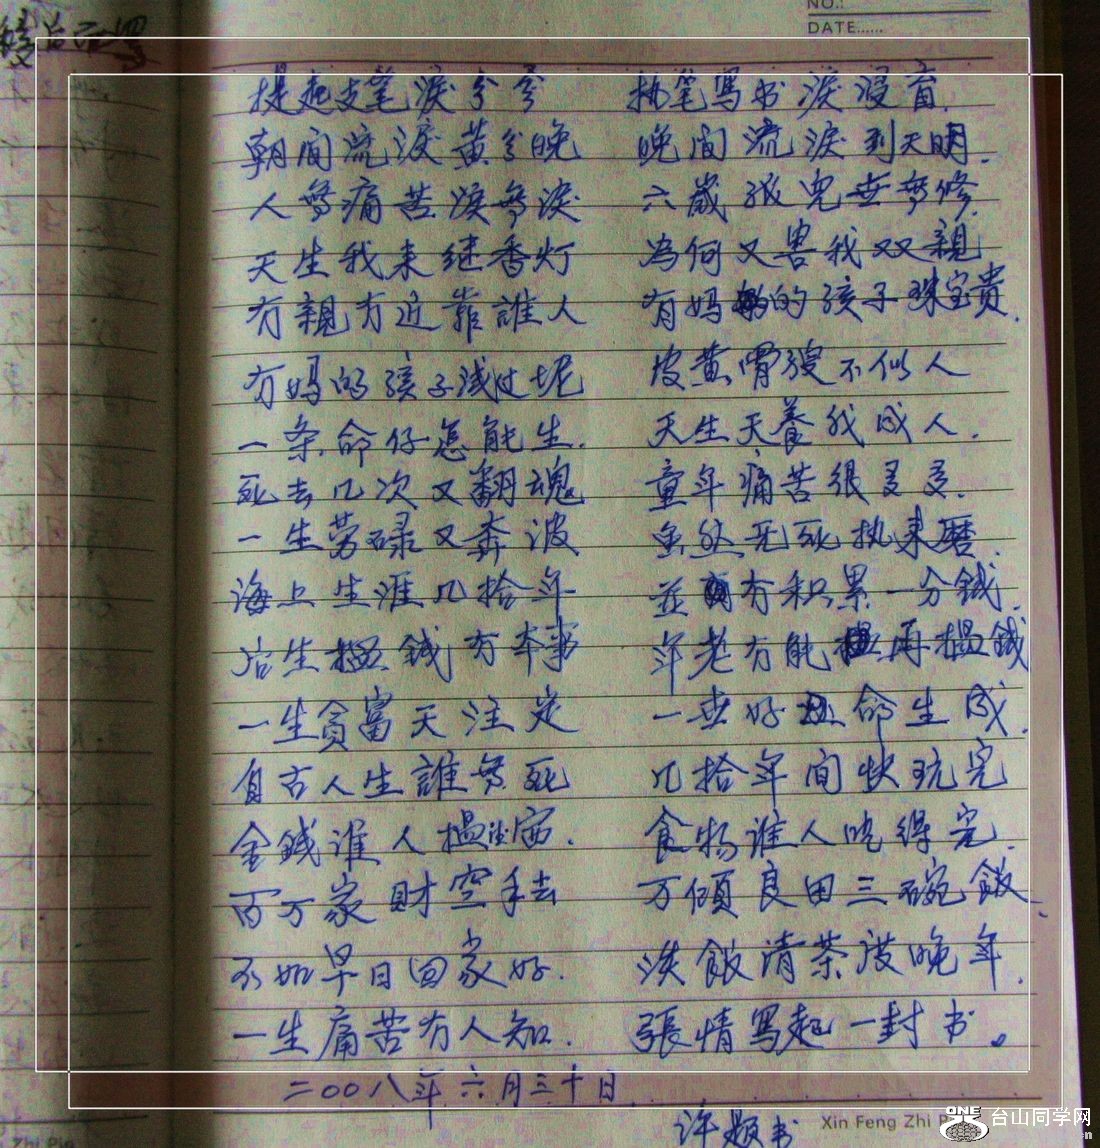 NO.:
DATE......
提起支笔淚兮兮 执笔写书淚浸盲.
朝间流淚黄兮晚 晚间流淚到天明.
人无痛苦淚无淚 六歲孤児世无修.
天生我来继香灯 為何又害我双親
冇親冇近靠誰人 有妈的孩子珠宝贵.
冇妈的孩子浅过坭 皮黄骨瘦不似人
一条命仔怎能生. 天生天養我成人.
死去几次又翻魂 童年痛苦很多多.
一生劳碌又奔波 虽然无死执来磨.
海上生涯几拾年 並有积累一分錢.
后生揾錢冇本事 年老冇能再揾錢
一生贫富天注定 一世好丑命生成.
自古人生誰无死 几拾年间快玩完
金錢谁人揾 食物谁人吃得完.
百万家財空手去 万傾良田三碗飯.
不如早日回家好. 淡飯清茶渡晚年.
一生痛苦冇人知. 張情写起一封书。
二〇〇八年六月三十日.
许题书
Xin Feng Zhi P
Zhi Pin
ONE 台山同学网